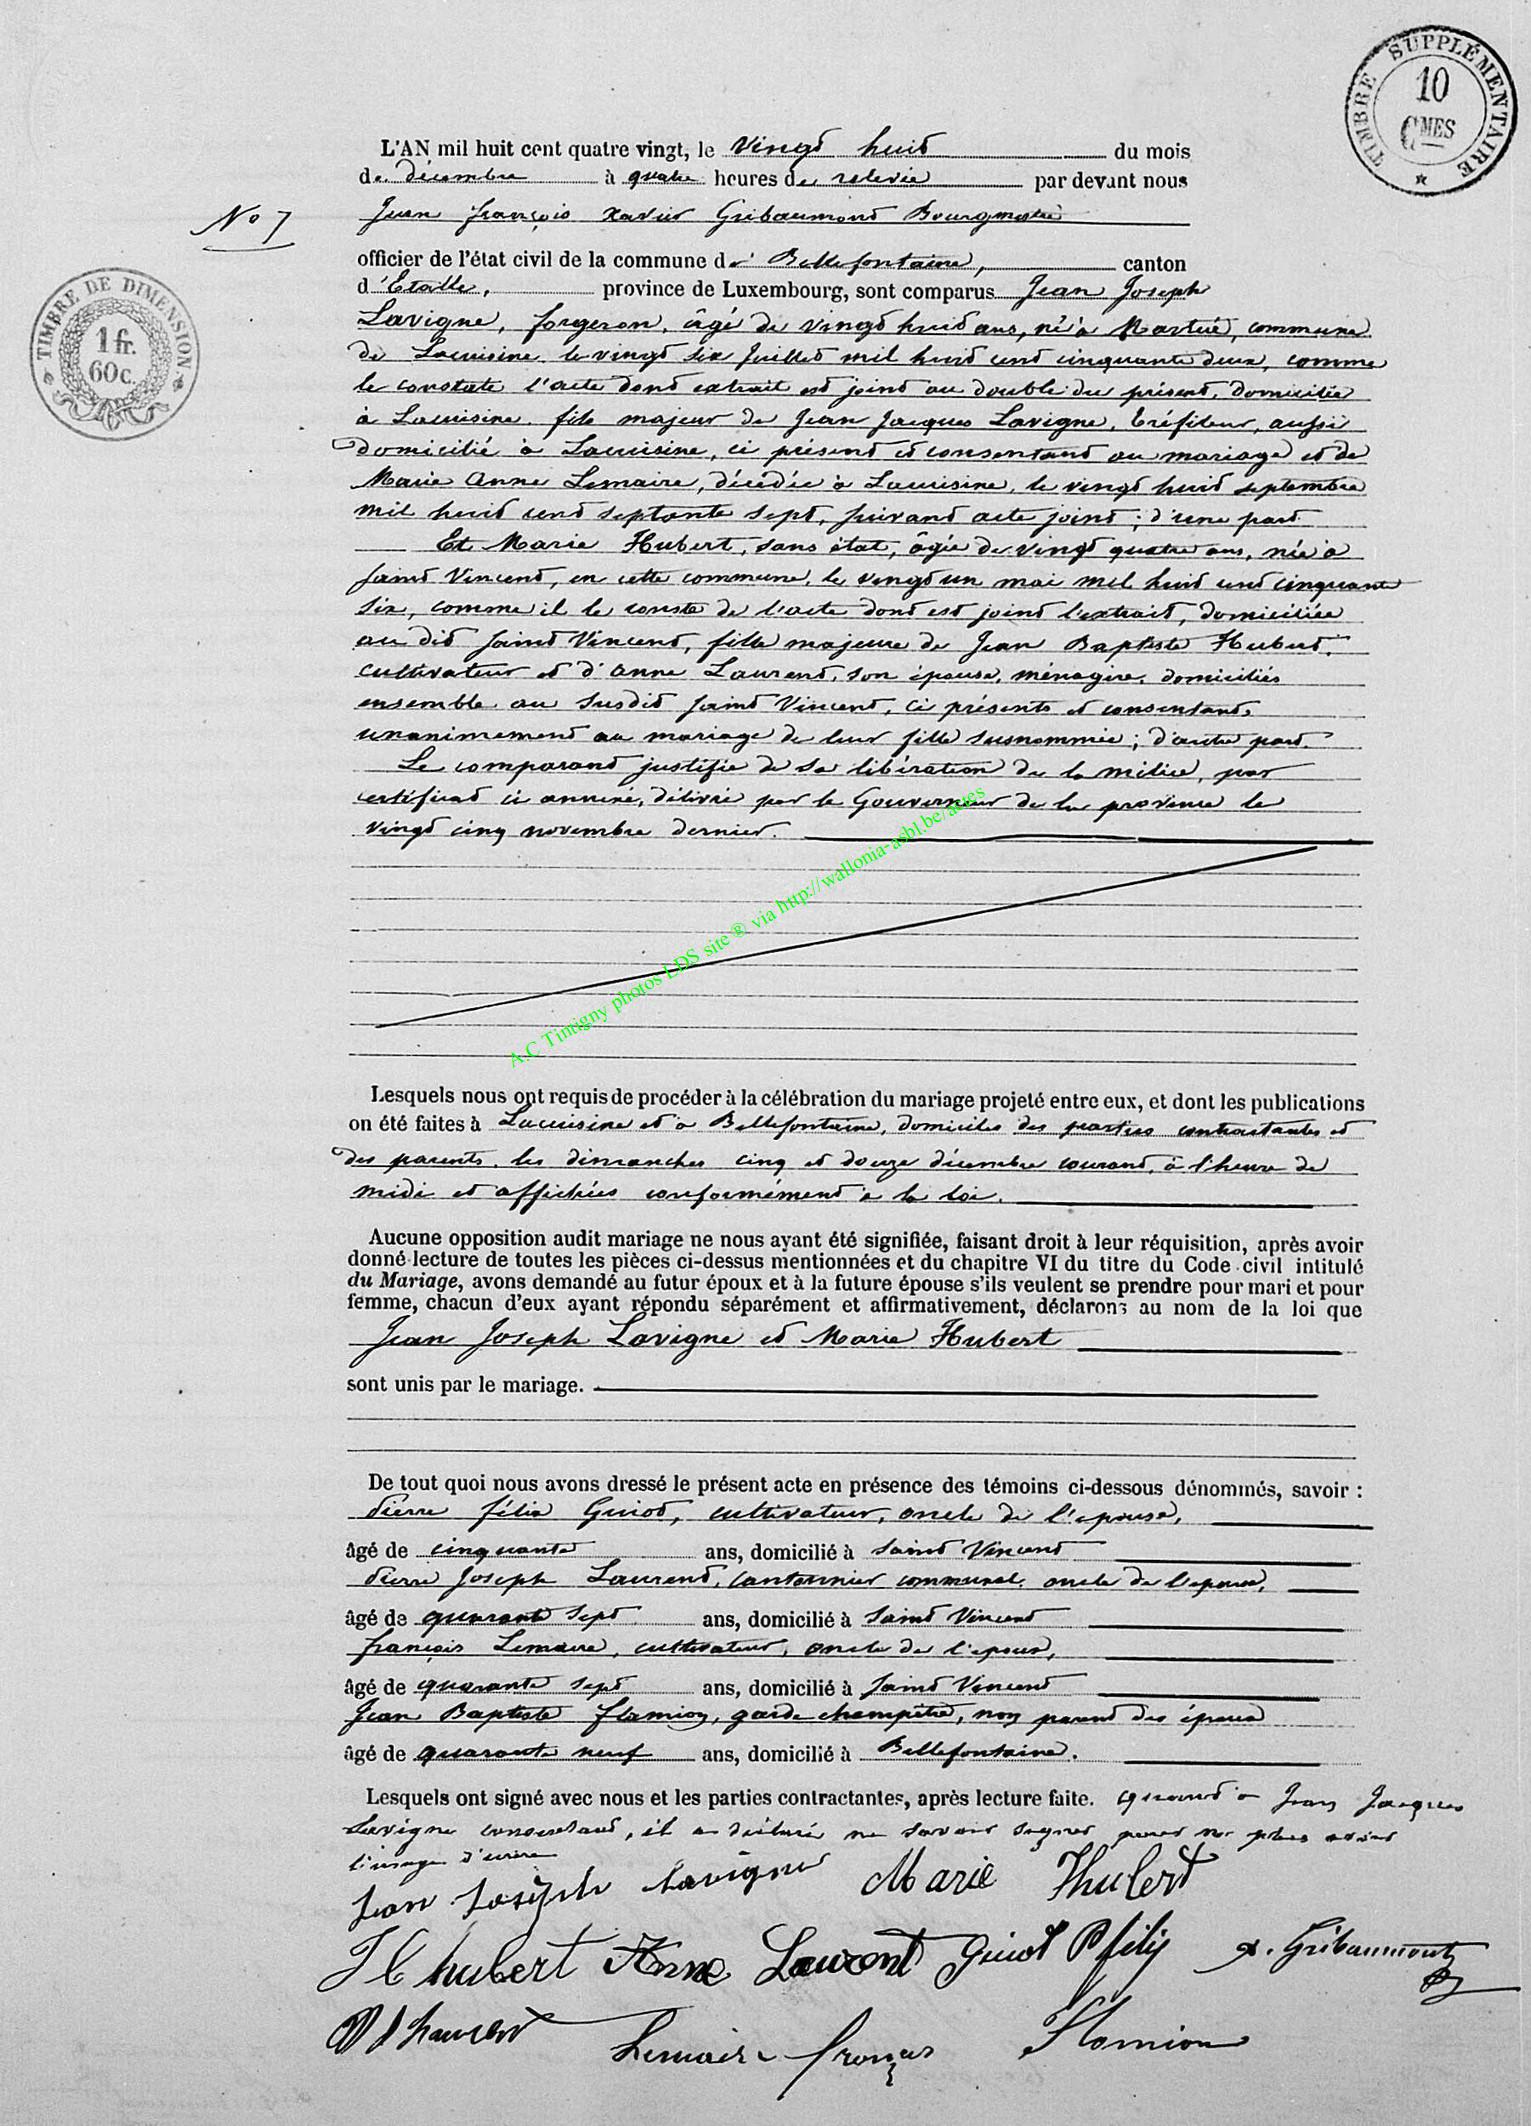 TIMBRE SUPPLÉMENTAIRE
10
CMES
L'AN mil huit cent quatre vingt, le vingt huit du mois
de décembre à quatre heures de relevée par devant nous
No 7
Jean françois xavier Gribaumont Bourgmestre
officier de l'état civil de la commune de Bellefontaine, canton
d'Etalle, province de Luxembourg, sont comparus Jean Joseph
TIMBRE DE DIMENSION
1 fr.
60c.
Lavigne, forgeron, âgé de vingt huit ans, né à Martué, commune
de Lacuisine, le vingt six Juillet mil huit cent cinquante deux, comme
le constate l'acte dont extrait est joint au double du présent, domicilié
à Lacuisine, fils majeur de Jean Jacques Lavigne, tréfileur, aussi
domicilié à Lacuisine, ci présent et consentant au mariage et de
Marie Anne Lemaire, décédée à Lacuisine, le vingt huit septembre
mil huit cent septante sept, suivant acte joint; d'une part.
Et Marie Hubert, sans état, âgée de vingt quatre ans, née à
saint Vincent, en cette commune, le vingt un mai mil huit cent cinquante
six, comme il le conste de l'acte dont est joint l'extrait, domiciliée
au dit saint Vincent, fille majeure de Jean Baptiste Hubert,
cultivateur et d'anne Laurent, son épouse, ménagère, domiciliés
ensemble au susdit saint Vincent, ci présents et consentants
unanimement au mariage de leur fille susnommée; d'autre part.
Le comparant justifie de sa libération de la milice, par
certificat ci annexé, délivré par le Gouverneur de la province le
vingt cinq novembre dernier.
A.C Tintigny photos LDS site ® via http://wallonia-asbl.be/actes
Lesquels nous ont requis de procéder à la célébration du mariage projeté entre eux, et dont les publications
on été faites à Lacuisine et à Bellefontaine, domiciles des parties contractantes et
des parents, les dimanches cinq et douze décembre courant, à l'heure de
midi et affichées conformément à la loi.
Aucune opposition audit mariage ne nous ayant été signifiée, faisant droit à leur réquisition, après avoir
donné lecture de toutes les pièces ci-dessus mentionnées et du chapitre VI du titre du Code civil intitulé
du Mariage, avons demandé au futur époux et à la future épouse s'ils veulent se prendre pour mari et pour
femme, chacun d'eux ayant répondu séparément et affirmativement, déclarons au nom de la loi que
Jean Joseph Lavigne et Marie Hubert
sont unis par le mariage.
De tout quoi nous avons dressé le présent acte en présence des témoins ci-dessous dénommés, savoir :
Pierre félix Guiot, cultivateur, oncle de l'epouse,
âgé de cinquante ans, domicilié à saint Vincent
Pierre Joseph Laurent, cantonnier communal, oncle de l'epouse,
âgé de quarante sept ans, domicilié à saint Vincent
françois Lemaire, cultivateur, oncle de l'epoux,
âgé de quarante sept ans, domicilié à saint Vincent
Jean Baptiste flamion, garde champêtre, non parent des époux
âgé de quarante neuf ans, domicilié à Bellefontaine.
Lesquels ont signé avec nous et les parties contractantes, après lecture faite. quant à Jean Jacques
Lavigne consentant, il a déclaré ne savoir signer pour ne plus avoir
l'usage d'écrire
Jean Joseph Lavigne Marie Hubert
J B hubert Anne Laurent Guiot P félix x. Gribaumont
P J Laurent Lemaire françois Flamion